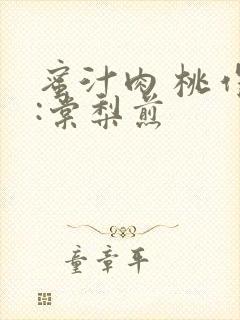 蜜汁肉桃作
:棠梨煎
童章平